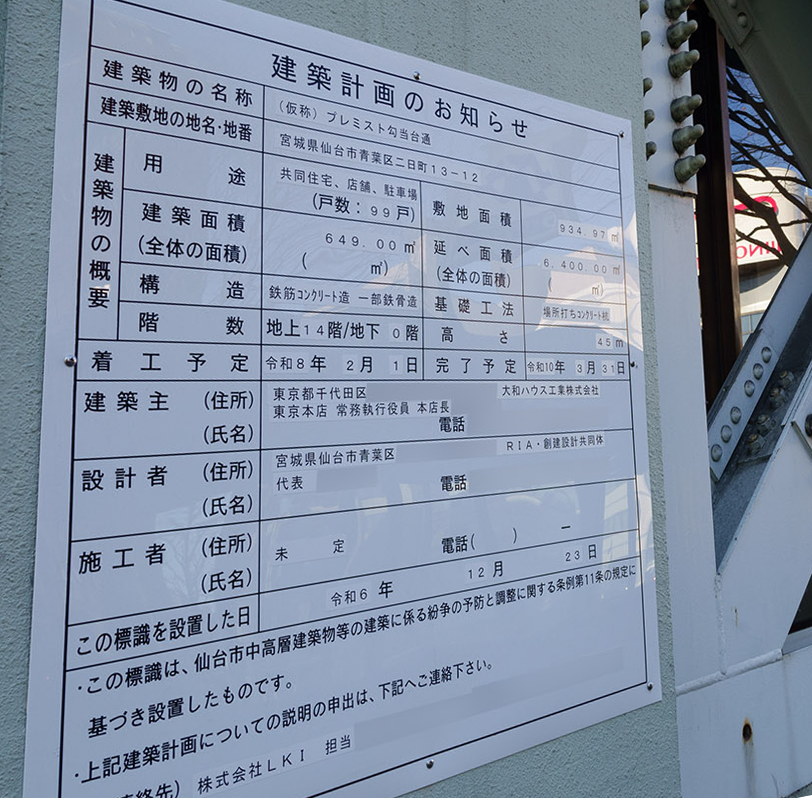 建築計画のお知らせ
建築物の名称 (仮称) プレミスト勾当台通
建築敷地の地名・地番 宮城県仙台市青葉区二日町13-12
建築物の概要
用途 共同住宅、店舗、駐車場 (戸数: 99戸) 敷地面積 934.97㎡
建築面積 (全体の面積) 649.00㎡ ( ㎡) 延べ面積 (全体の面積) 6,400.00㎡ ( ㎡)
構造 鉄筋コンクリート造 一部鉄骨造 基礎工法 場所打ちコンクリート杭
階数 地上14階/地下 0階 高さ 45m
着工予定 令和8年 2月 1日 完了予定 令和10年 3月 31日
建築主 (住所) 東京都千代田区 大和ハウス工業株式会社
東京本店 常務執行役員 本店長
(氏名) 電話
設計者 (住所) 宮城県仙台市青葉区 RIA・創建設計共同体
(氏名) 代表 電話
施工者 (住所) 未定 電話( ) ー
(氏名)
この標識を設置した日 令和6年 12月 23日
・この標識は、仙台市中高層建築物等の建築に係る紛争の予防と調整に関する条例第11条の規定に
基づき設置したものです。
・上記建築計画についての説明の申出は、下記へご連絡下さい。
絡先) 株式会社LKI 担当